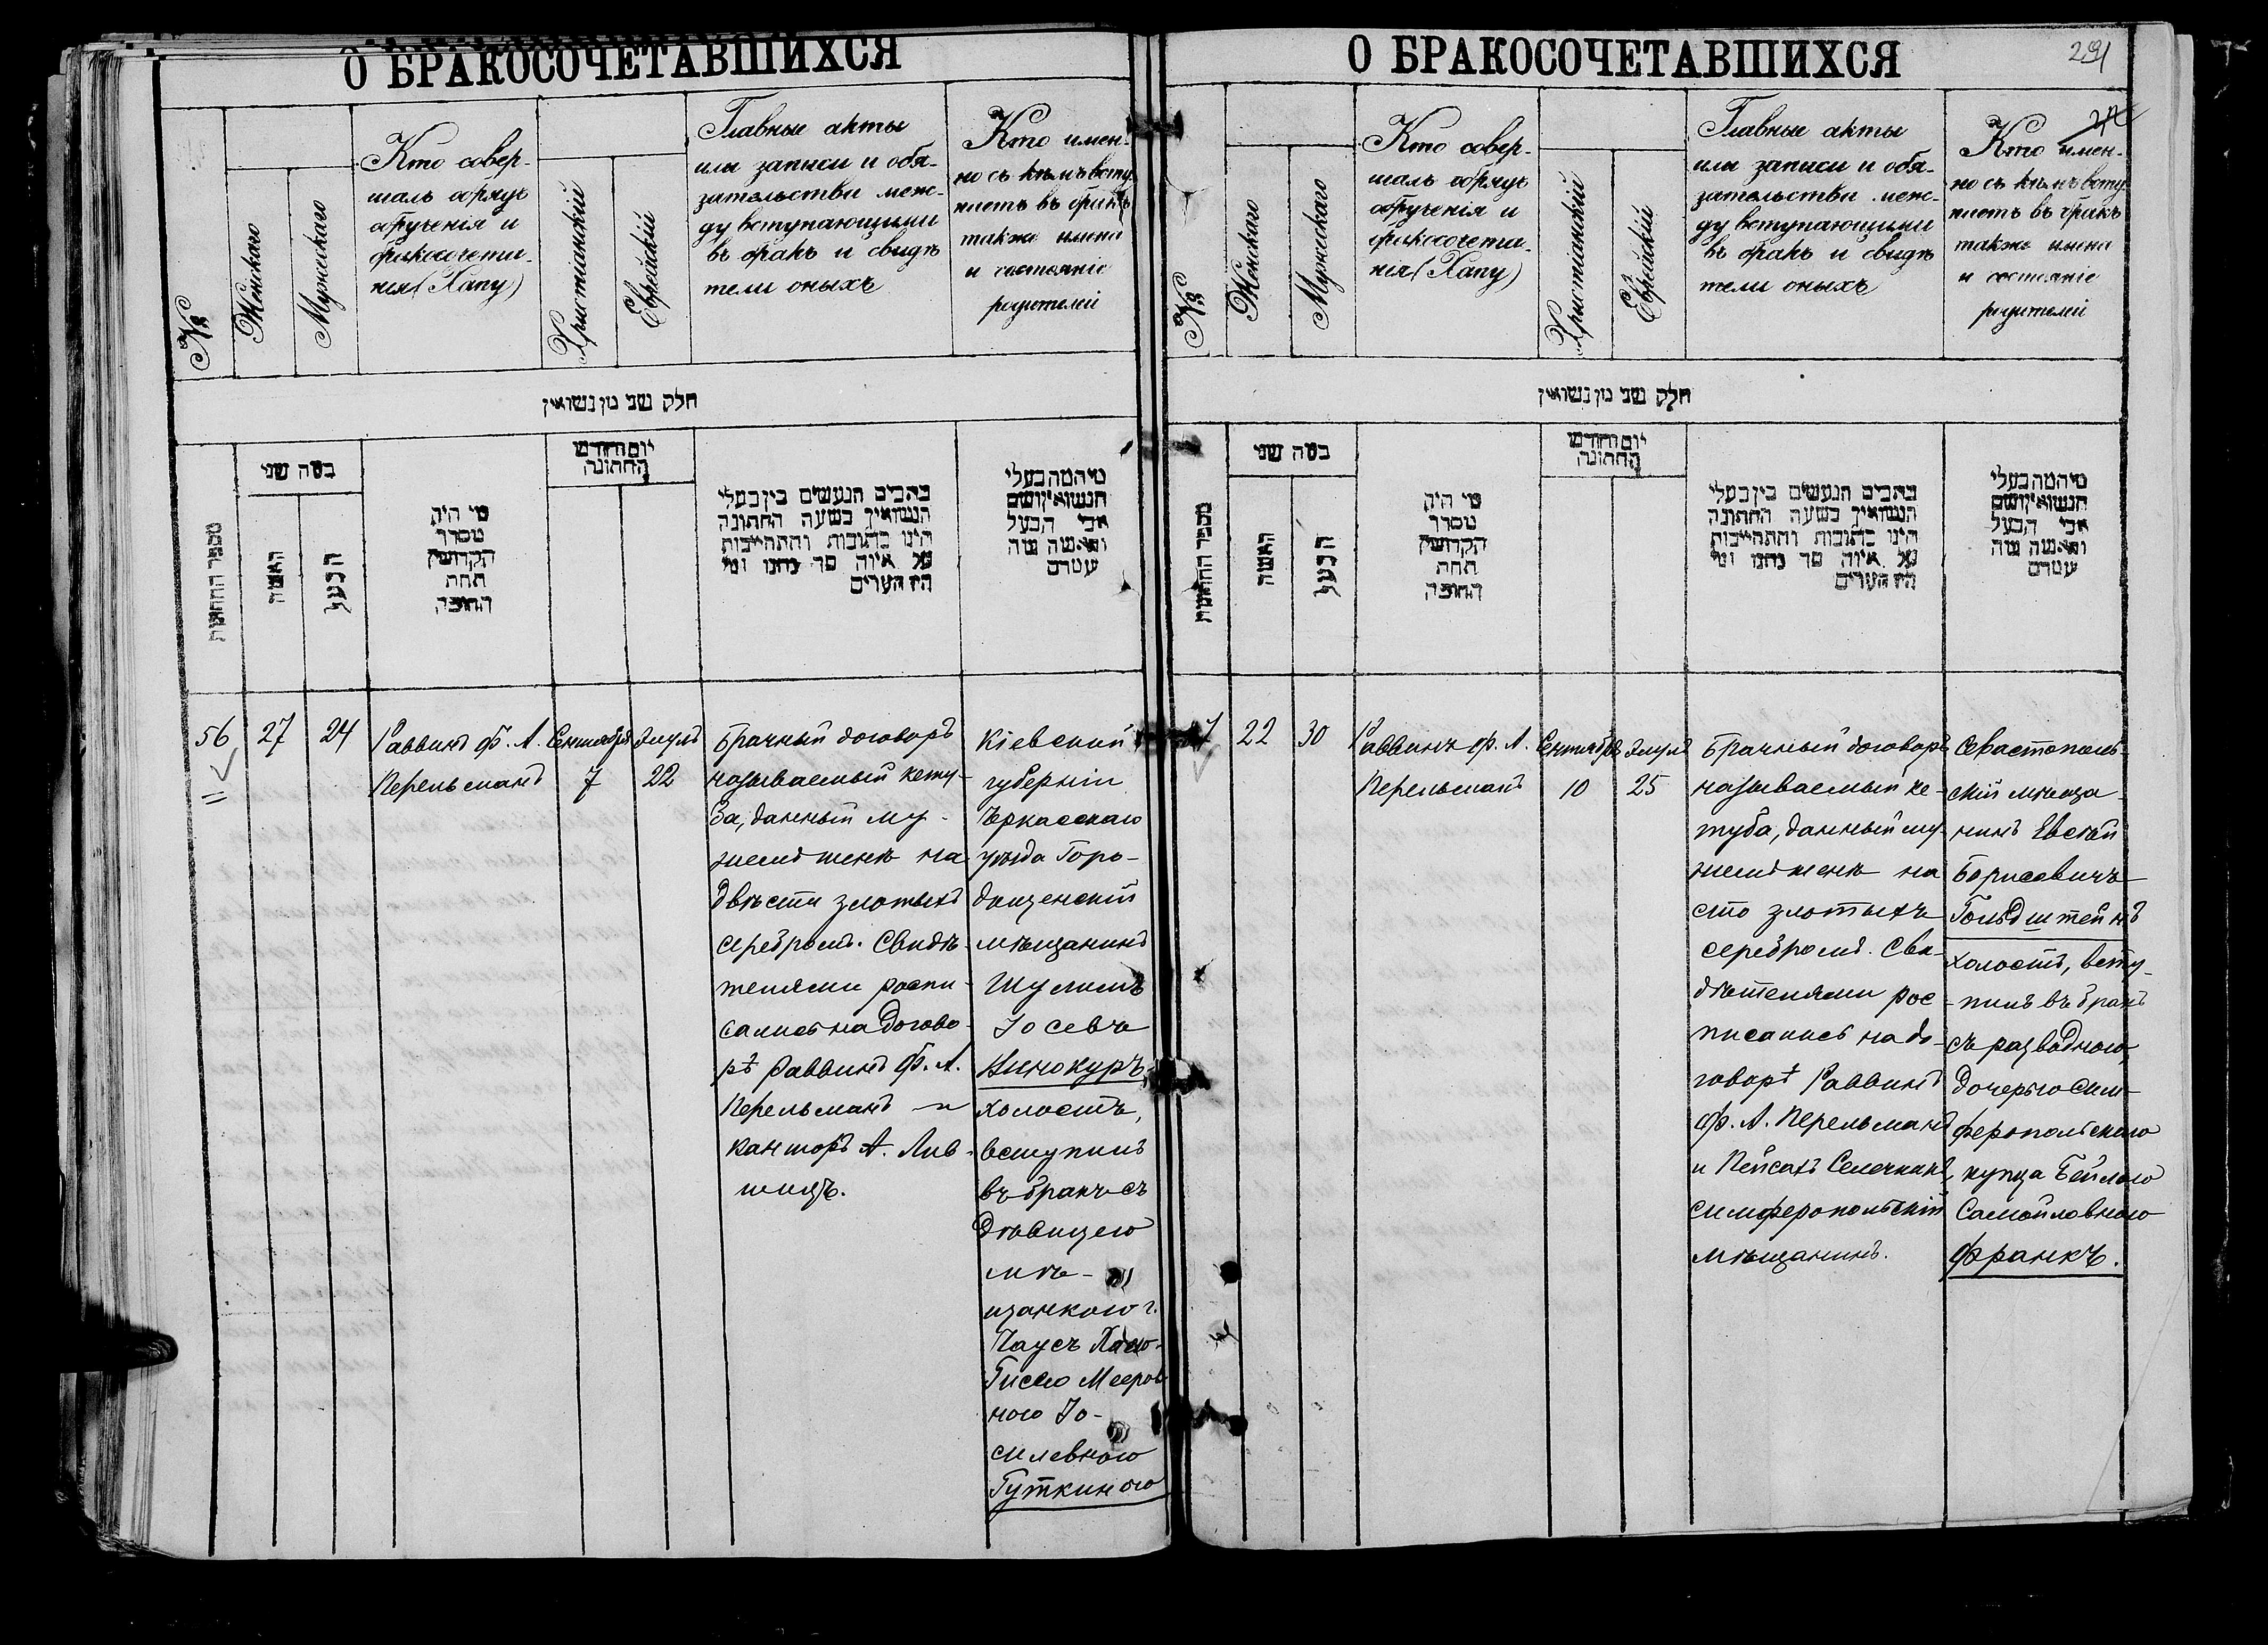 О БРАКОСОЧЕТАВШИХСЯ
№
Женскаго
Мужескаго
Кто совер-
шалъ обрядъ
обрученія и
бракосочета-
нія (Хапу)
Христіанскій
Еврейскій
Главные акты
или записи и обя-
зательства меж-
ду вступающими
въ бракъ и свидѣ
тели оныхъ
Кто имен-
но съ кѣмъ всту
паетъ въ бракъ
также имена
и состояніе
родителей
חלק שני מן נשואין
מספר החתונות
כמה שני
האשה
הבעל
מי היה
מסדר
הקדושין
תחת
החופה
יום וחודש
החתונה
כתבים הנעשים בין בעלי
הנשואין בשעה החתונה
היינו כתובות והתחייבות
על איזה סך נתנו ומי
היו העדים
מי המה בעלי
הנשואין ושם
אבי הבעל
והאשה ומה
עמדם
56
27
24
Раввинъ Ф. А.
Перельманъ
Сентября
7
Элулъ
22
Брачный договоръ
называемый кету-
ба, данный му-
жемъ женѣ на
двѣсти злотыхъ
серебромъ. Свидѣ-
телями распи-
сались на догово-
рѣ Раввинъ Ф. А.
Перельманъ и
канторъ А. Лив-
шицъ.
Кіевской
губерніи
Черкасскаго
уѣзда Горо-
дищенскій
мѣщанинъ
Шулимъ
Іосевъ
Винокуръ
холостъ,
вступилъ
въ бракъ съ
дѣвицею
мѣ-
щанкою г.
Гиссею Мееров
ною Іо-
силевною
Гуткиною
О БРАКОСОЧЕТАВШИХСЯ
291
№
Женскаго
Мужескаго
Кто совер-
шалъ обрядъ
обрученія и
бракосочета-
нія (Хапу)
Христіанскій
Еврейскій
Главные акты
или записи и обя-
зательства меж-
ду вступающими
въ бракъ и свидѣ
тели оныхъ
Кто имен-
но съ кѣмъ всту
паетъ въ бракъ
также имена
и состояніе
родителей
חלק שני מן נשואין
מספר החתונות
כמה שני
האשה
הבעל
מי היה
מסדר
הקדושין
תחת
החופה
יום וחודש
החתונה
כתבים הנעשים בין בעלי
הנשואין בשעה החתונה
היינו כתובות והתחייבות
על איזה סך נתנו ומי
היו העדים
מי המה בעלי
הנשואין ושם
אבי הבעל
והאשה ומה
עמדם
22
30
Раввинъ Ф. А.
Перельманъ
Сентября
10
Элулъ
25
Брачный договоръ
называемый ке-
туба, данный му-
жемъ женѣ на
сто злотыхъ
серебромъ. Сви-
дѣтелями рос-
писались на до-
говорѣ Раввинъ
Ф. А. Перельманъ
и Пейсахъ Селечкинъ,
симферопольскій
мѣщанинъ.
Севастополь-
скій мѣща-
нинъ Евсѣй
Борисовичъ
Гольдштейнъ
холостъ, всту-
пилъ въ бракъ
съ разводною
дочерью сим-
феропольскаго
купца Бейлою
Самойловною
Франкъ.